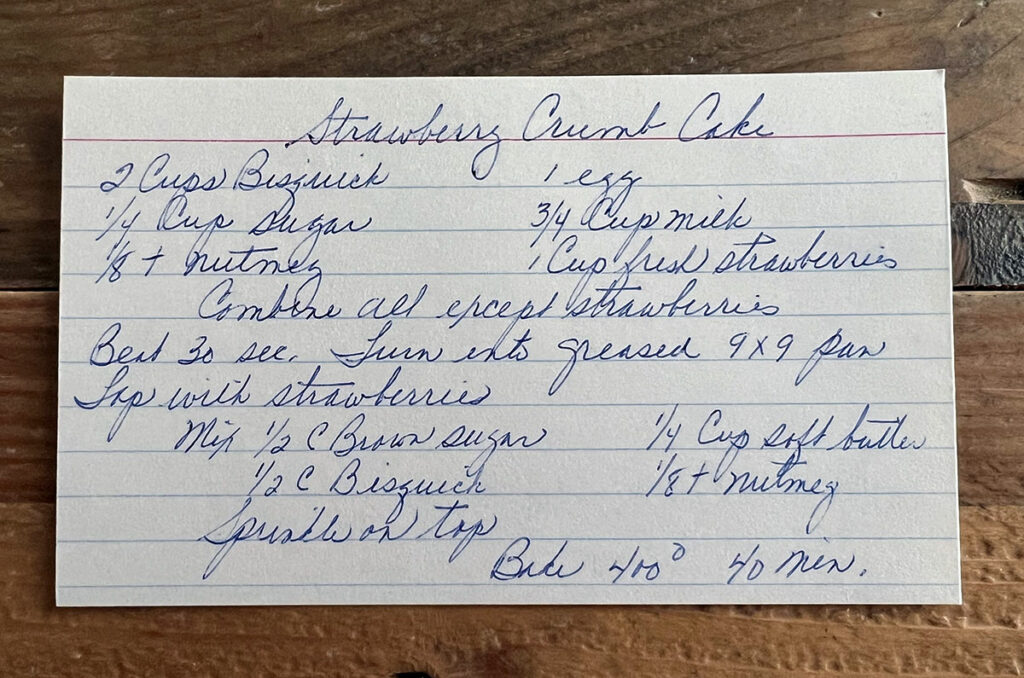 Strawberry Crumb Cake
2 Cups Bisquick 1 egg
1/4 Cup sugar 3/4 Cup milk
1/8 t nutmeg 1 Cup fresh strawberries
Combine all except strawberries
Beat 30 sec. Turn into greased 9x9 pan
Top with strawberries
Mix 1/2 C Brown sugar 1/4 Cup soft butter
1/2 C Bisquick 1/8 t nutmeg
Sprinkle on top
Bake 400° 40 min.